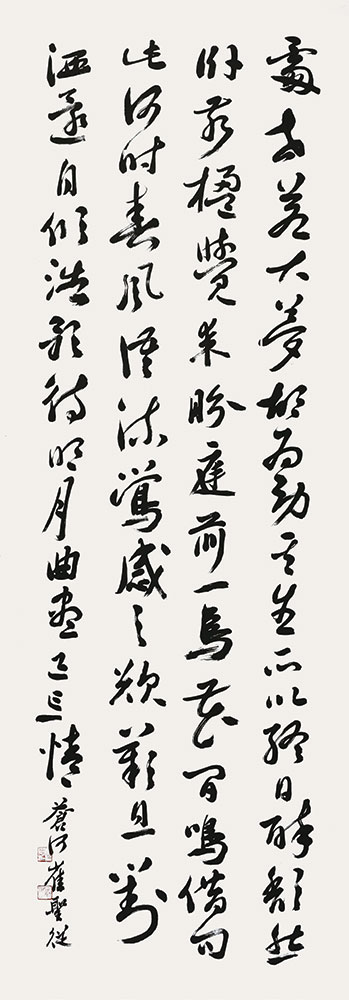 處世若大夢胡為勞其生所以終日醉頹然
臥前楹覺來盼庭前一鳥花間鳴借問
此何時春風語流鶯感之欲歎息對
酒還自傾浩歌待明月曲盡已忘情
蒼河崔聖從